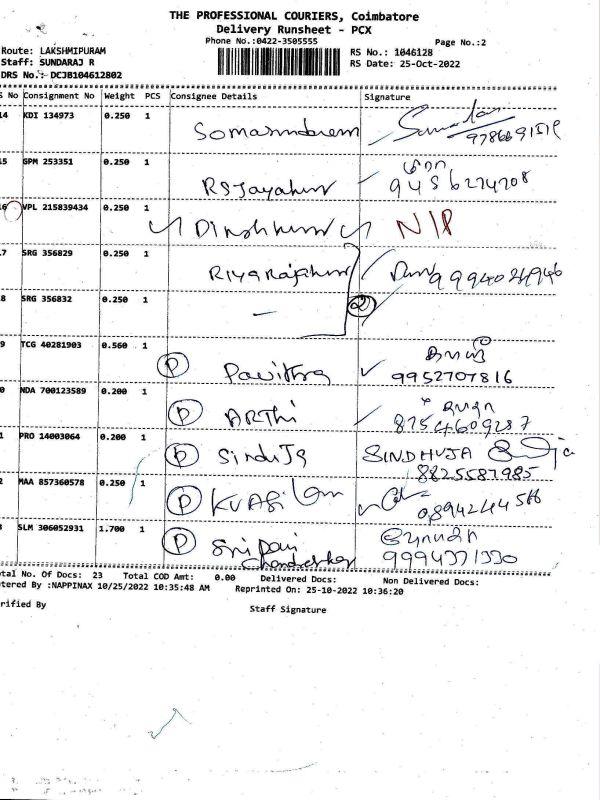 THE PROFESSIONAL COURIERS, Coimbatore
Delivery Runsheet - PCX
Phone No.:0422-3505555
Page No.:2
Route: LAKSHMIPURAM
RS No.: 1046128
Staff: SUNDARAJ R
RS Date: 25-Oct-2022
DRS No.:- DCJB104612802
S No Consignment No Weight PCS Consignee Details Signature
14 KDI 134973 0.250 1
15 GPM 253351 0.250 1 RSJayakumar
9456274708
16 VPL 215839434 0.250 1 Dineshkumar N/P
17 SRG 356829 0.250 1 Riyarajakumar
18 SRG 356832 0.250 1 — 2
19 TCG 40281903 0.560 1 P Pavithra
9952707816
20 NDA 700123589 0.200 1 P ARTHi
8754609287
21 PRO 14003064 0.200 1 P SinduJa SINDHUJA
8825587985
22 MAA 857360578 0.250 1 P
23 SLM 306052931 1.700 1 P
9994371330
Total No. Of Docs: 23 Total COD Amt: 0.00 Delivered Docs: Non Delivered Docs:
Entered By :NAPPINAX 10/25/2022 10:35:48 AM Reprinted On: 25-10-2022 10:36:20
Verified By Staff Signature